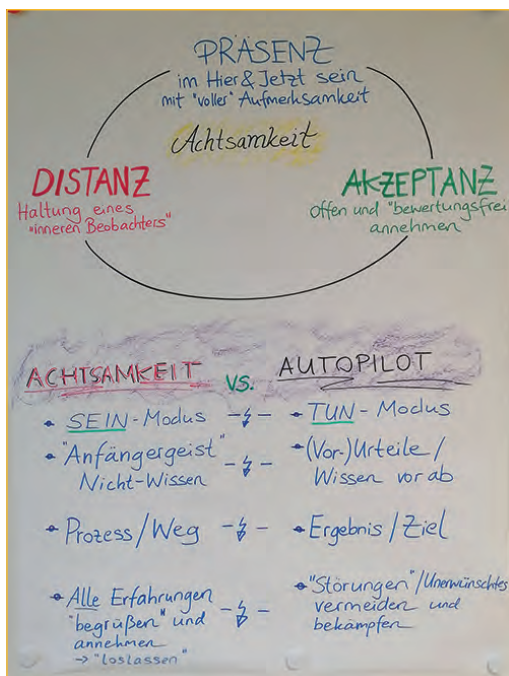 PRÄSENZ
im Hier & Jetzt sein
mit "voller" Aufmerksamkeit
Achtsamkeit
DISTANZ
Haltung eines
"inneren Beobachters"
AKZEPTANZ
Offen und "bewertungsfrei
annehmen"
ACHTSAMKEIT VS. AUTOPILOT
• SEIN-Modus
• TUN-Modus
• "Anfängergeist"
Nicht-Wissen
• (Vor-)Urteile/
Wissen vor ab
• Prozess/Weg
• Ergebnis/Ziel
• Alle Erfahrungen
"begrüßen" und
annehmen
→ "loslassen"
• "Störungen"/Unerwünschtes
vermeiden und
bekämpfen